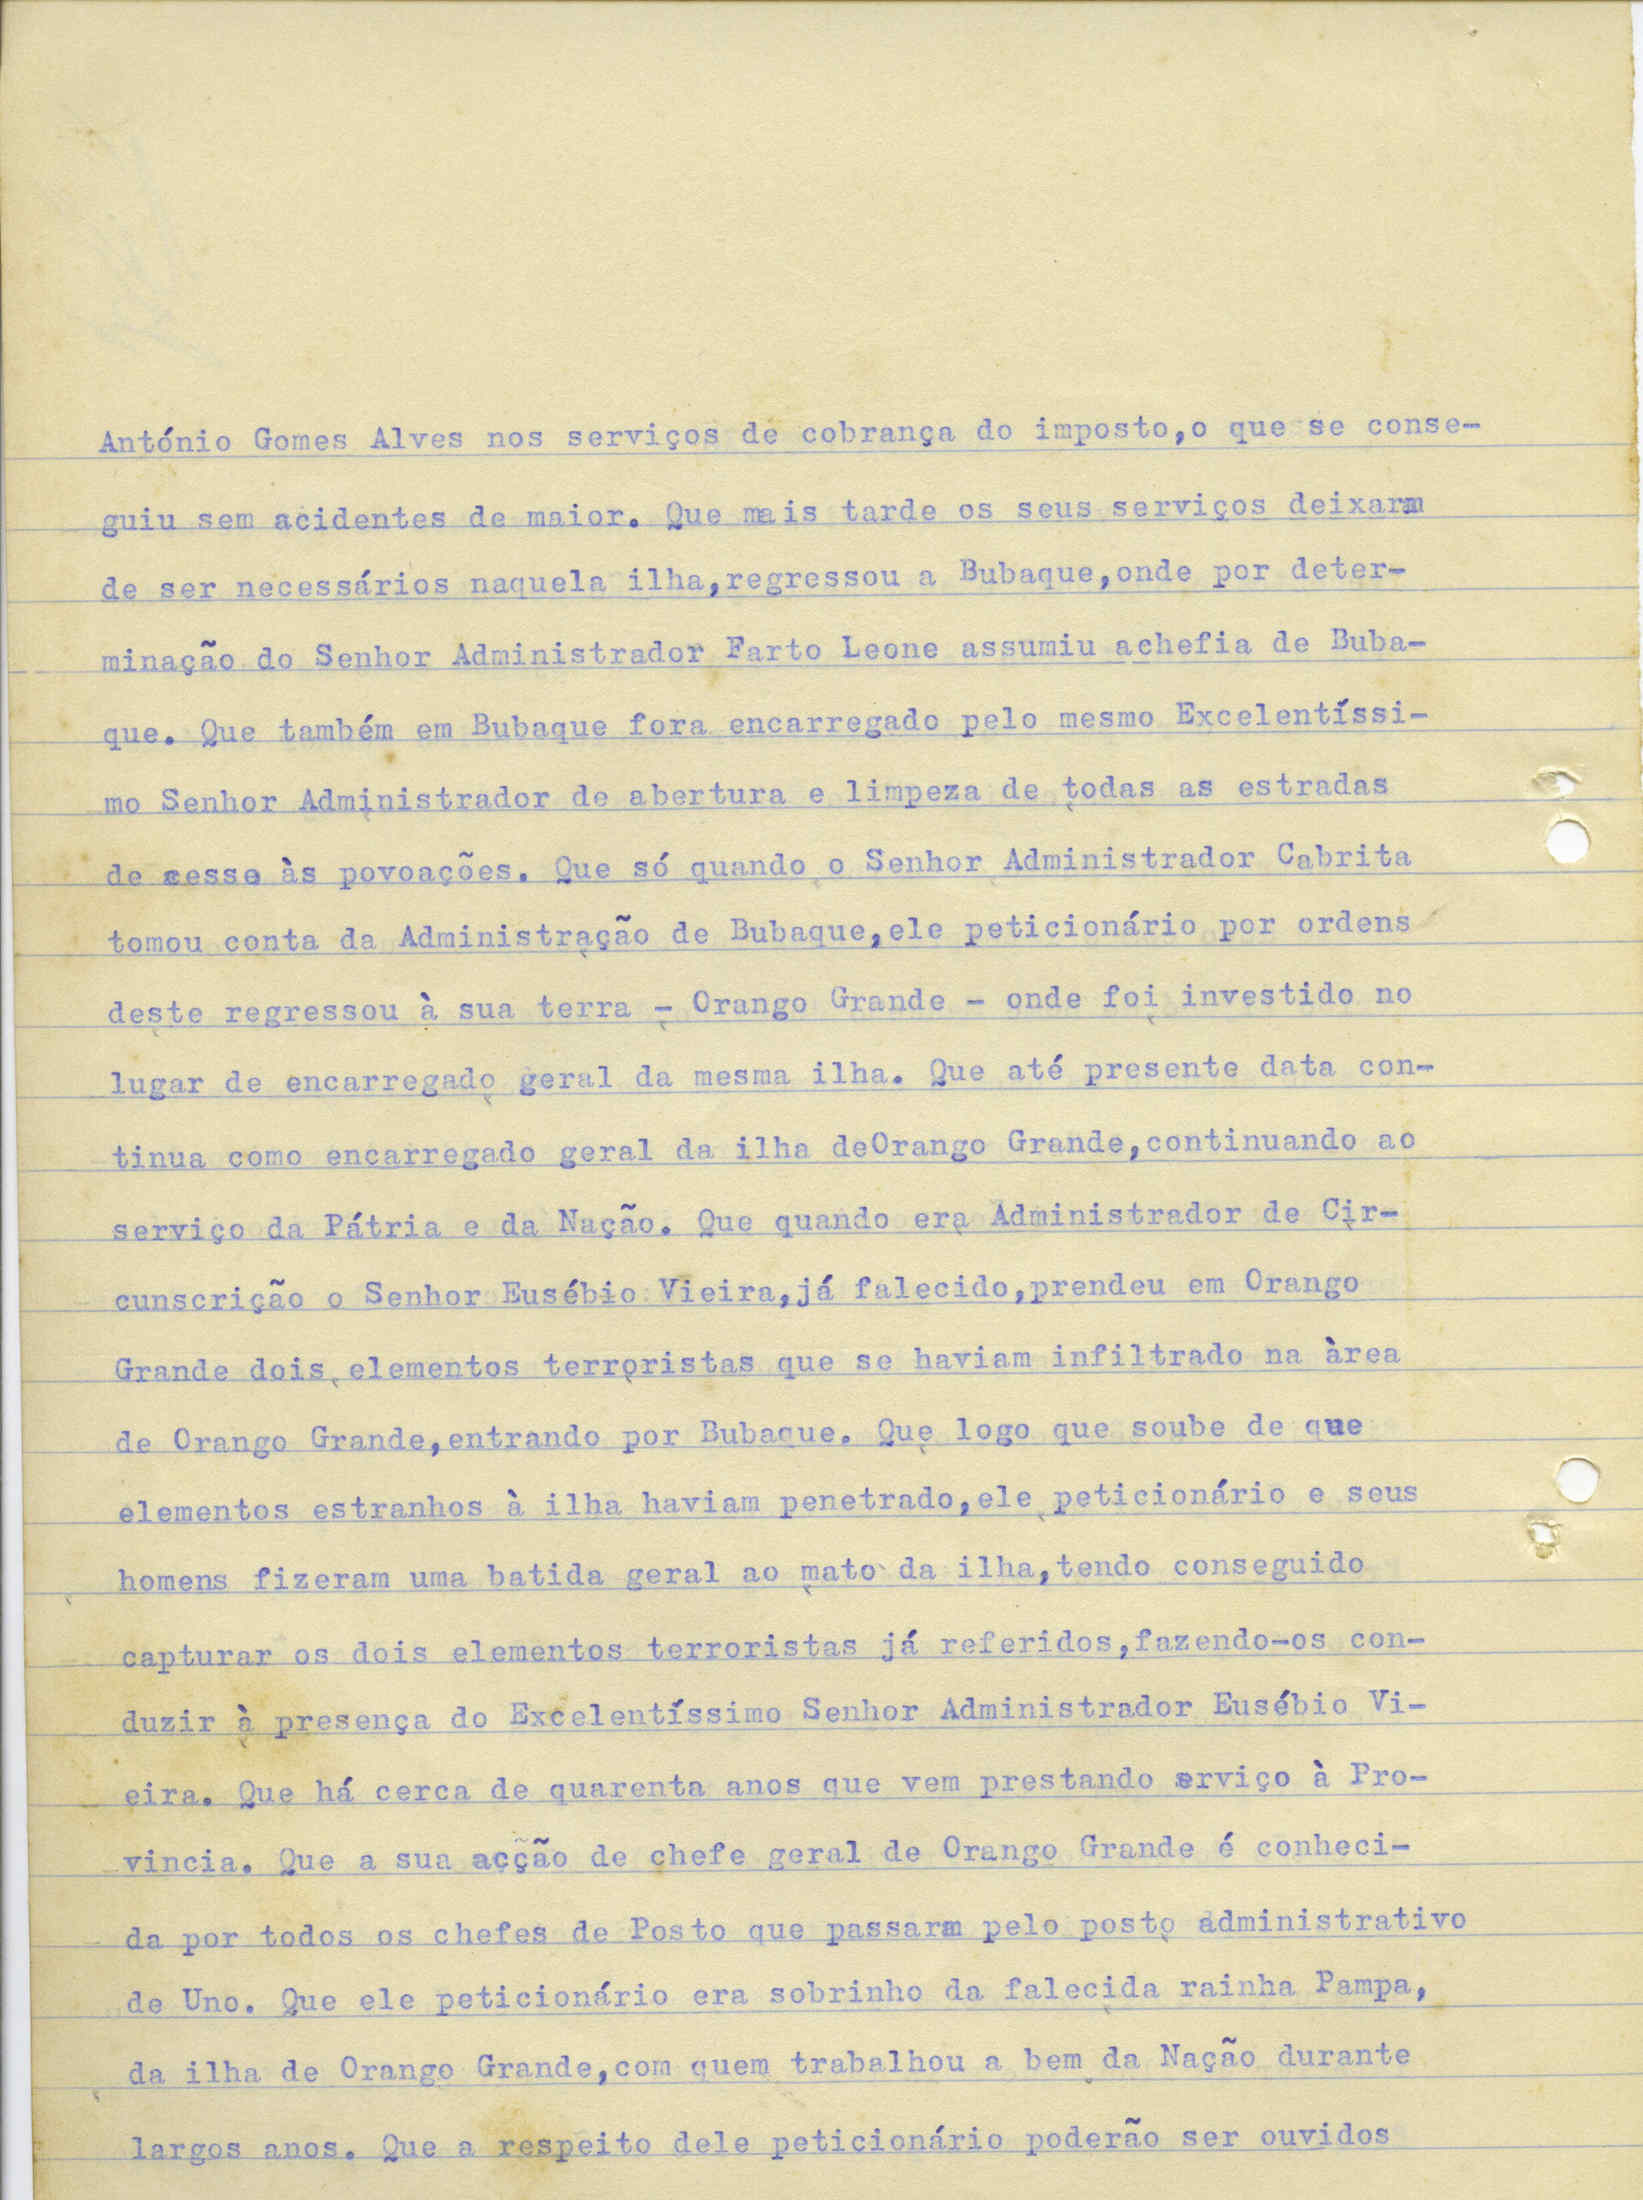 António Gomes Alves nos serviços de cobrança do imposto,o que se conse-
guiu sem acidentes de maior. Que mais tarde os seus serviços deixarm
de ser necessários naquela ilha,regressou a Bubaque,onde por deter-
minação do Senhor Administrador Farto Leone assumiu achefia de Buba-
que. Que também em Bubaque fora encarregado pelo mesmo Excelentíssi-
mo Senhor Administrador de abertura e limpeza de todas as estradas
de às povoações. Que só quando o Senhor Administrador Cabrita
tomou conta da Administração de Bubaque,ele peticionário por ordens
deste regressou à sua terra - Orango Grande - onde foi investido no
lugar de encarregado geral da mesma ilha. Que até presente data con-
tinua como encarregado geral da ilha deOrango Grande,continuando ao
serviço da Pátria e da Nação. Que quando era Administrador de Cir-
cunscrição o Senhor Eusébio Vieira,já falecido,prendeu em Orango
Grande dois elementos terroristas que se haviam infiltrado na àrea
de Orango Grande,entrando por Bubaque. Que logo que soube de que
elementos estranhos à ilha haviam penetrado,ele peticionário e seus
homens fizeram uma batida geral ao mato da ilha,tendo conseguido
capturar os dois elementos terroristas já referidos,fazendo-os con-
duzir à presença do Excelentíssimo Senhor Administrador Eusébio Vi-
eira. Que há cerca de quarenta anos que vem prestando serviço à Pro-
vincia. Que a sua acção de chefe geral de Orango Grande é conheci-
da por todos os chefes de Posto que passarm pelo posto administrativo
de Uno. Que ele peticionário era sobrinho da falecida rainha Pampa,
da ilha de Orango Grande,com quem trabalhou a bem da Nação durante
largos anos. Que a respeito dele peticionário poderão ser ouvidos